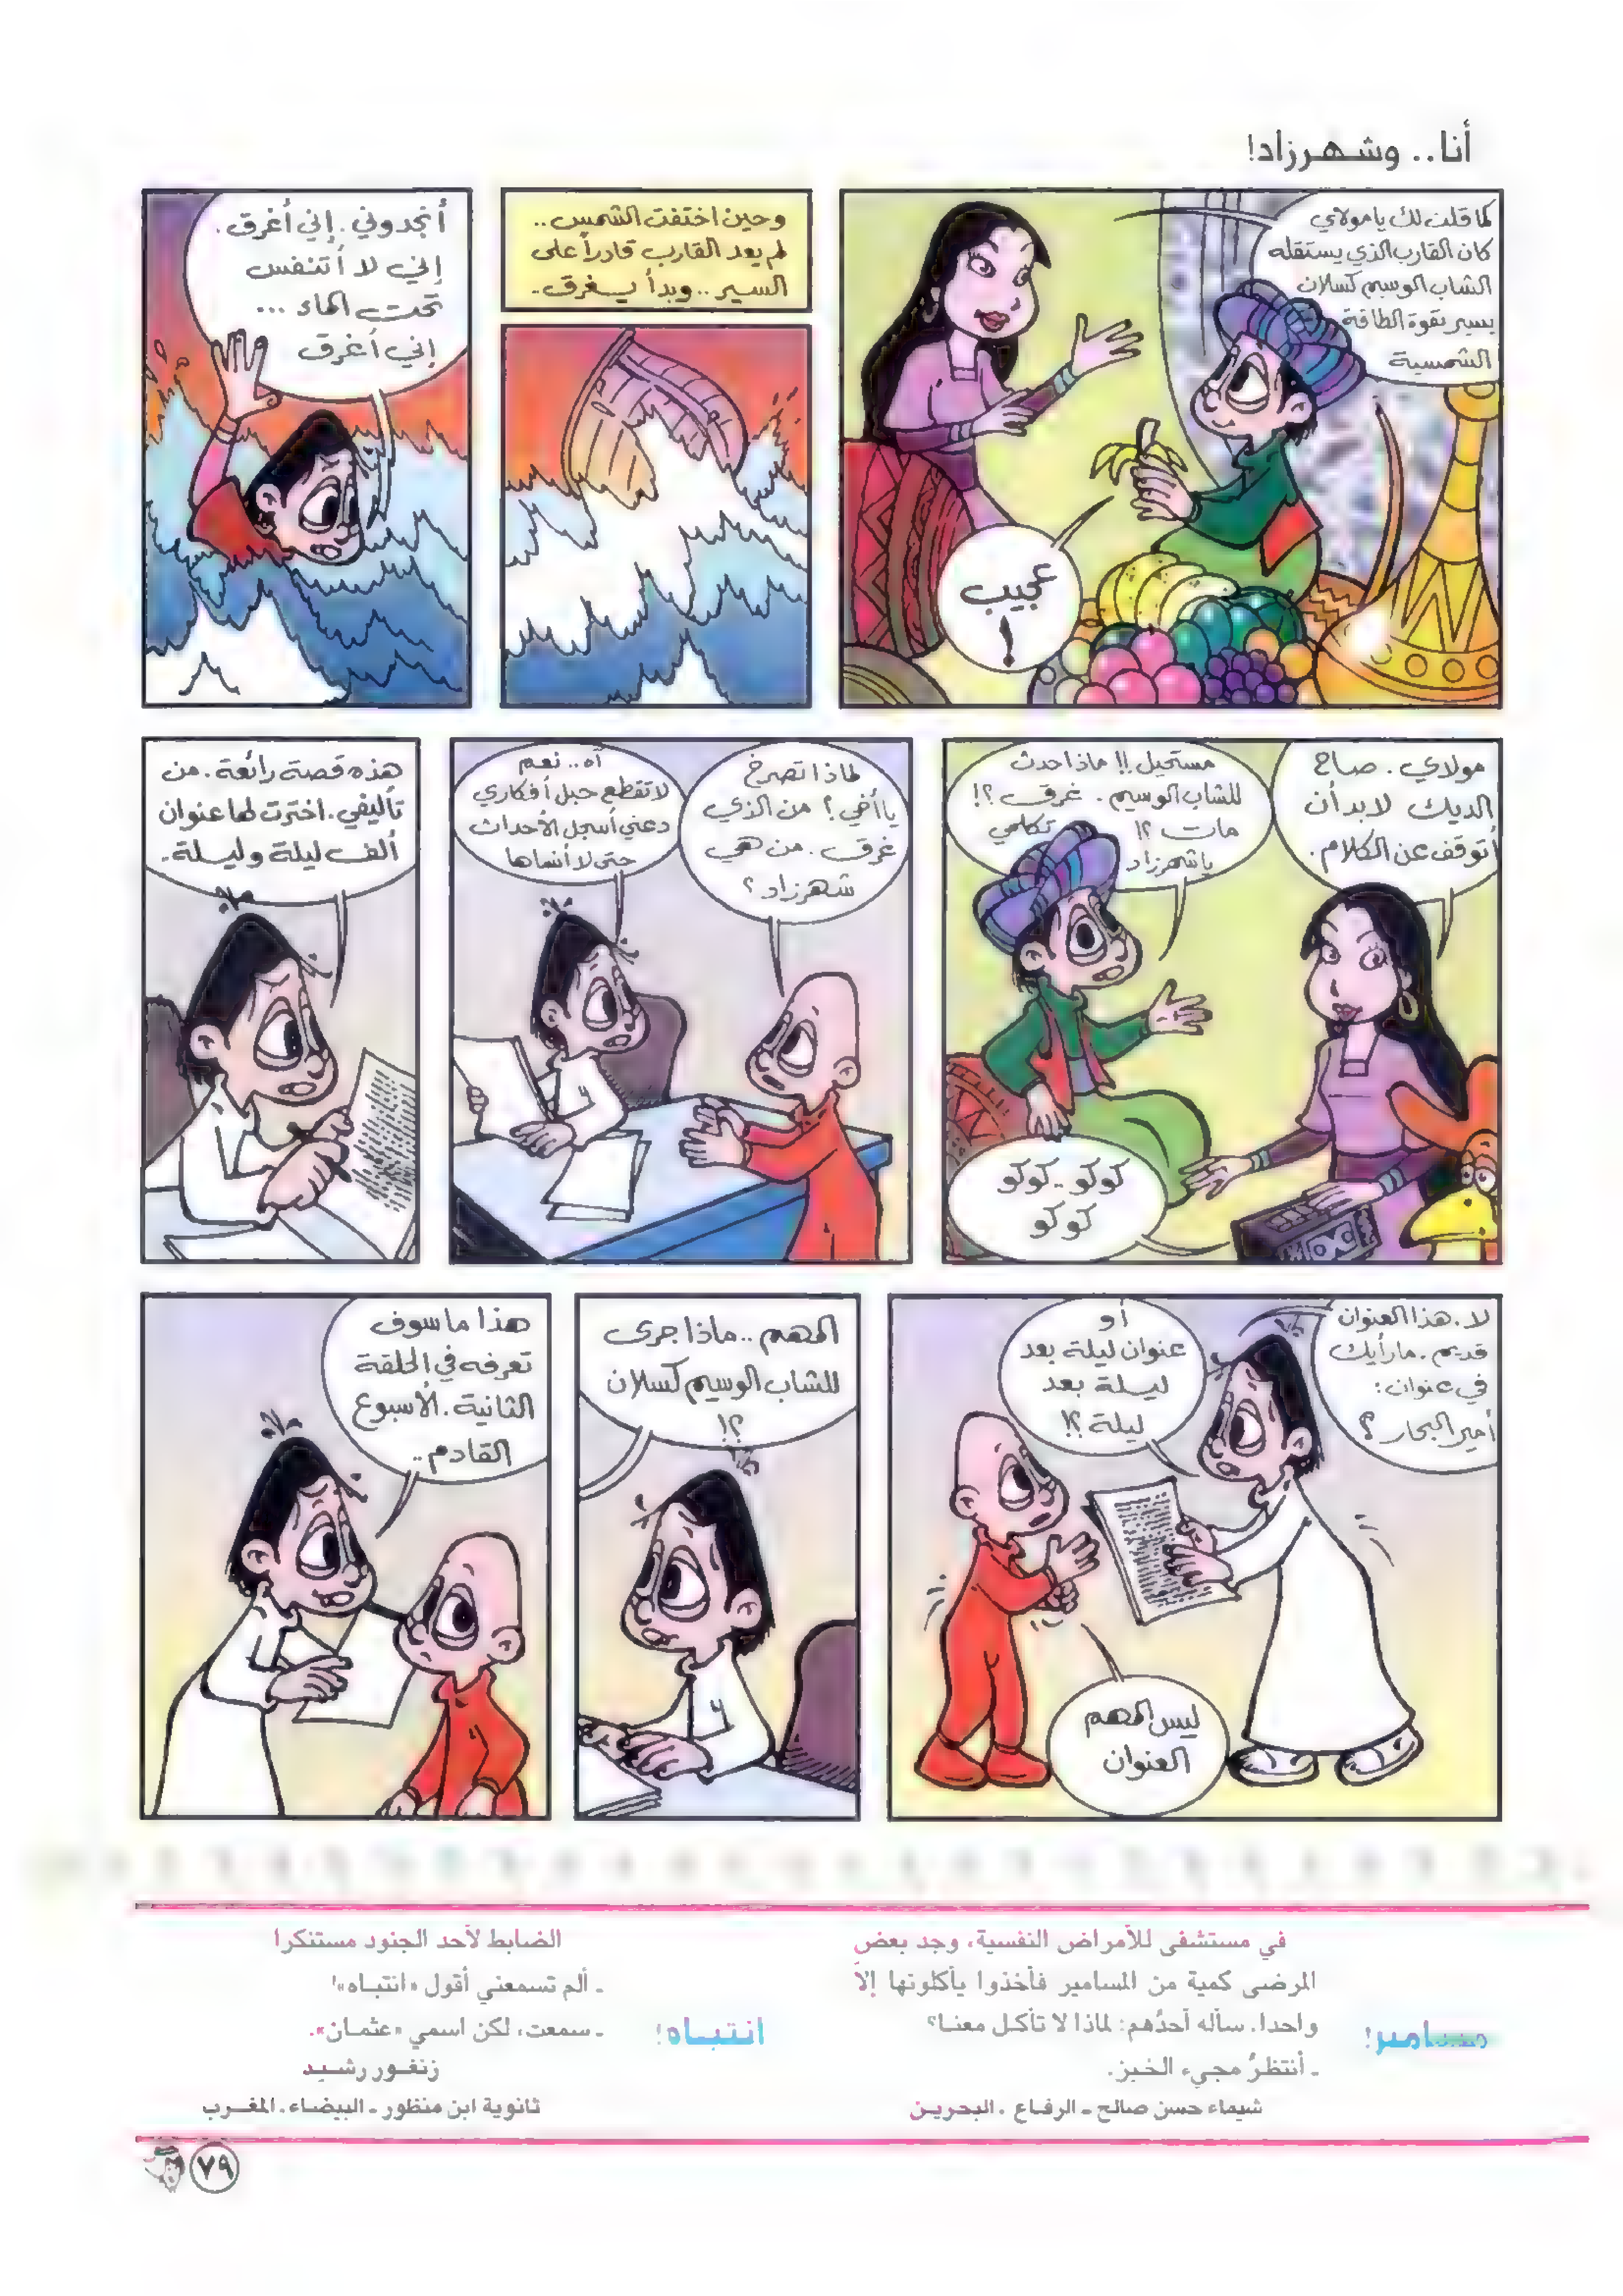 أنا.. وشهرزاد!
كما قلت لك يا مولاي
كان القارب الذي يستقله
الشاب الوسيم كسلان
يسير بقوة الطاقة
الشمسية
عجيب
!
وحين اختفت الشمس..
لم يعد القارب قادراً على
السير.. وبدأ يغرق.
أنجدوني. إني أغرق.
إني لا أتنفس
تحت الماء ...
إني أغرق
مولاي. صاح
الديك لابد أن
أتوقف عن الكلام.
مستحيل!! ماذا حدث
للشاب الوسيم. غرق؟!
مات؟! تكلمي
يا شهرزاد
كوكو.. كوكو
كوكو
لماذا تصرخ
يا أخي؟ من الذي
غرق. من هي
شهرزاد؟
آه.. نعم
لا تقطع حبل أفكاري
دعني أسجل الأحداث
حتى لا أنساها
هذه قصة رائعة. من
تأليفي. اخترت لها عنوان
ألف ليلة وليلة.
لا. هذا العنوان
قديم. ما رأيك
في عنوان:
أمير البحار؟
أو
عنوان ليلة بعد
ليلة بعد
ليلة؟!
ليس المهم
العنوان
المهم.. ماذا جرى
للشاب الوسيم كسلان
؟!
هذا ما سوف
تعرفه في الحلقة
الثانية. الأسبوع
القادم..
مسامير!
في مستشفى للأمراض النفسية، وجد بعض
المرضى كمية من المسامير فأخذوا يأكلونها إلاّ
واحدا. سأله أحدُهم: لماذا لا تأكل معنا؟
ـ أنتظرُ مجيء الخبز.
شيماء حسن صالح ـ الرفاع . البحرين
انتباه!
الضابط لأحد الجنود مستنكرا
ـ ألم تسمعني أقول «انتباه»!
ـ سمعت، لكن اسمي «عثمان».
زنغور رشيد
ثانوية ابن منظور ـ البيضاء. المغرب
٧٩